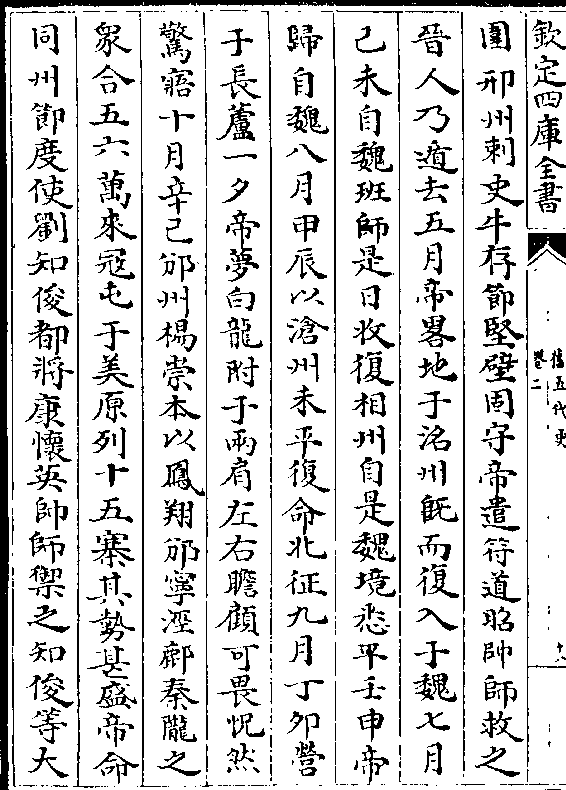 欽定四庫全書
舊五代史
卷二
十八
圍邢州刺史牛存節堅壁固守帝遣符道昭帥師救之
晉人乃遁去五月帝畧地于洺州旣而復入于魏七月
己未自魏班師是日收復相州自是魏境悉平壬申帝
歸自魏八月甲辰以滄州未平復命北征九月丁卯營
于長蘆一夕帝夢白龍附于兩肩左右瞻顧可畏怳然
驚寤十月辛巳邠州楊崇本以鳳翔邠寧涇鄜秦隴之
衆合五六萬來寇屯于美原列十五寨其勢甚盛帝命
同州節度使劉知俊都將康懷英帥師禦之知俊等大